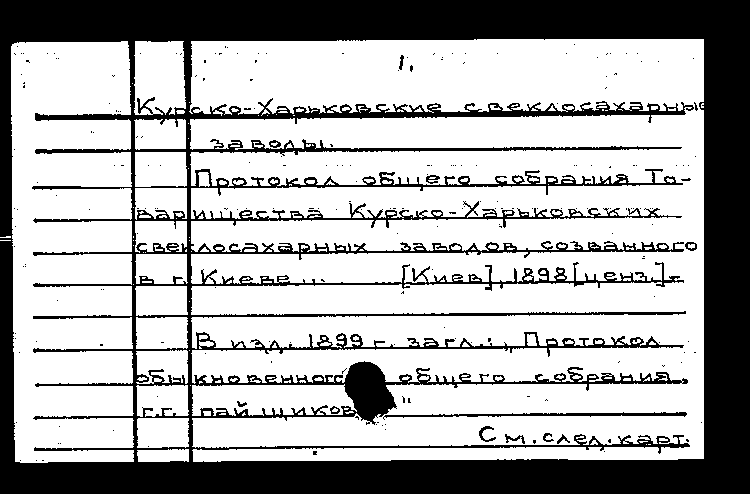 1.
Курско-Харьковские свеклосахарные
заводы.
Протокол общего собрания То-
варищества Курско-Харьковских
свеклосахарных заводов, созванного
в г. Киеве... [Киев], 1898 [ценз.].-
В изд. 1899 г. загл.: „Протокол
обыкновенного общего собрания
г.г. пайщиков"
См. след. карт.